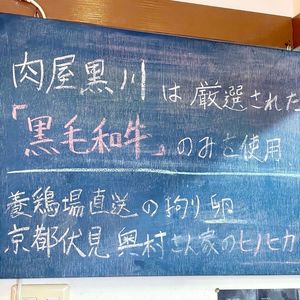 肉屋黒川は厳選された
「黒毛和牛」のみを使用
養鶏場直送の拘り卵
京都伏見奥村さん家のヒノヒカ